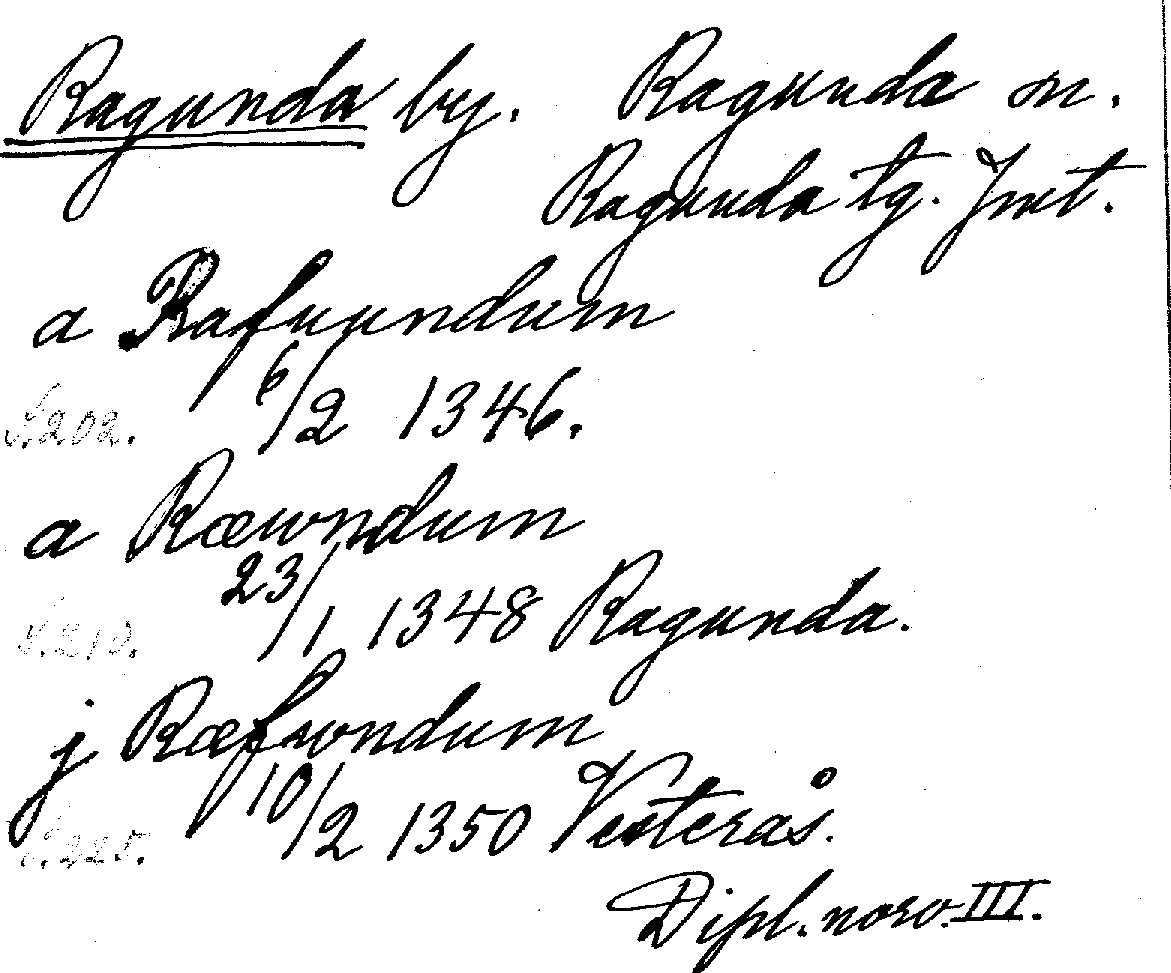 Ragunda by. Ragunda sn.
Ragunda tg. Jmt.
a Rafuundum
S. 202. 6/2 1346.
a Ræwndum
S. 210. 23/1 1348 Ragunda.
j Ræfwndum
S. 225. 10/2 1350 Vesterås.
Dipl. norv. III.